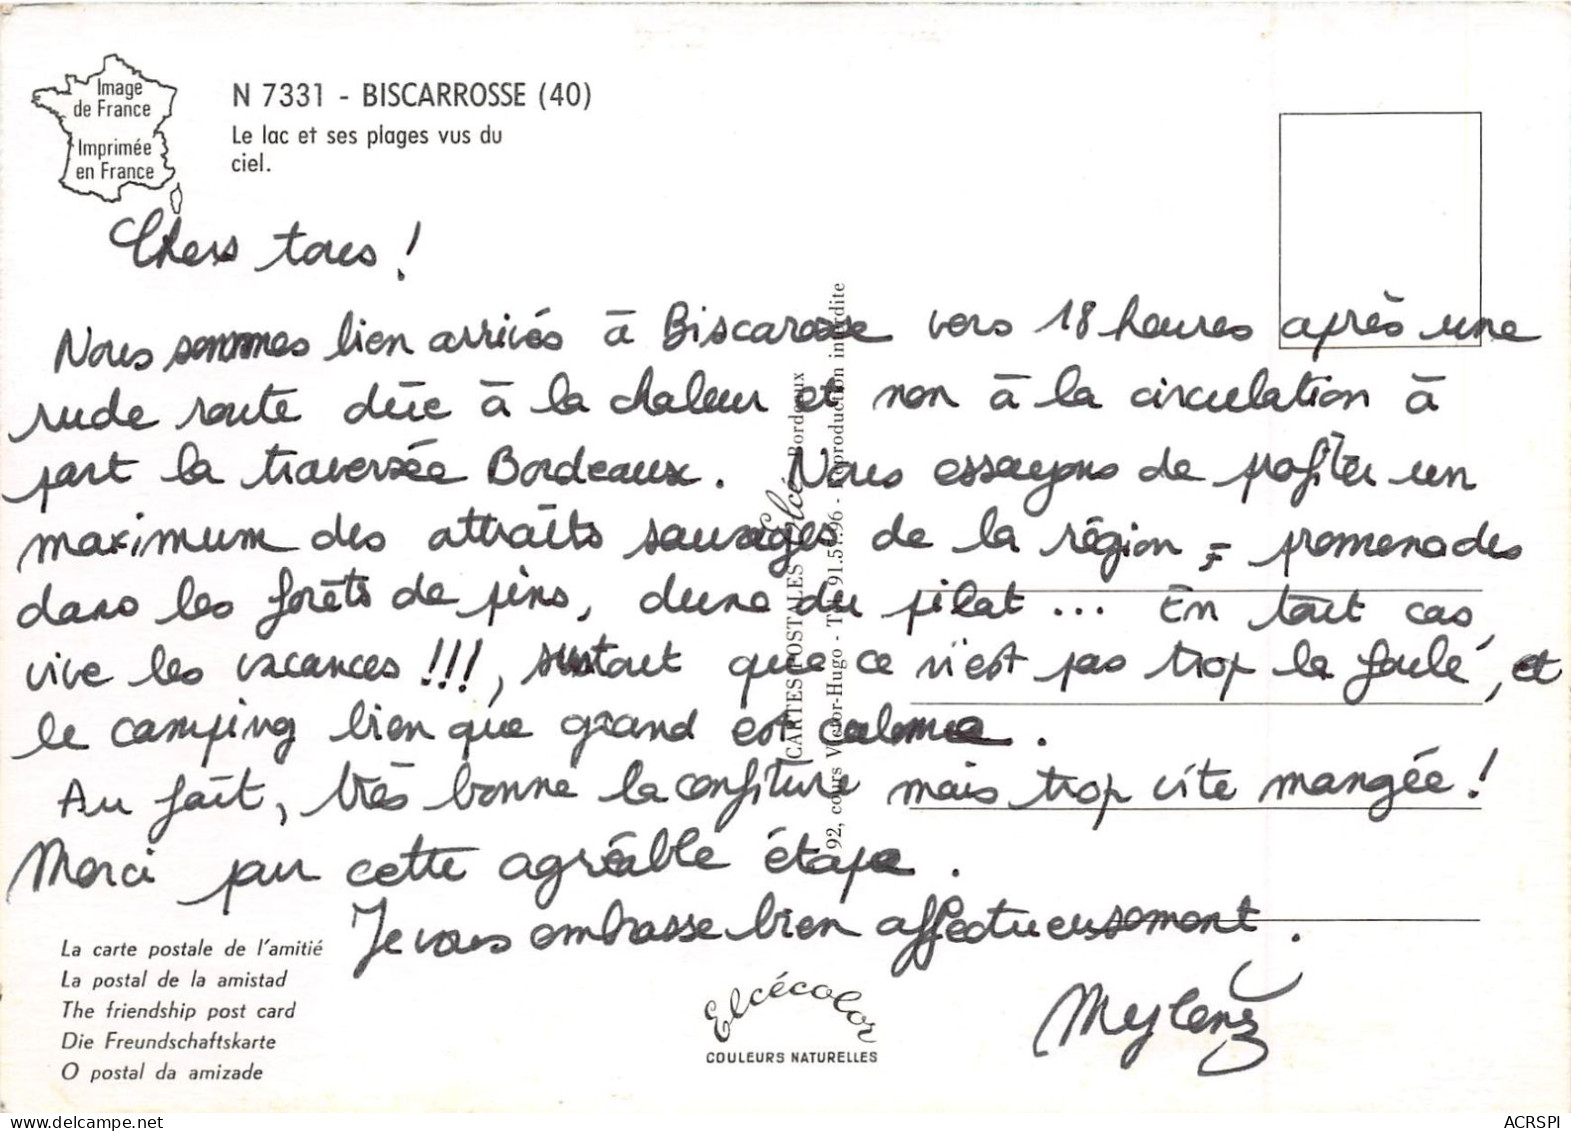 Image
de France
Imprimée
en France
N 7331 - BISCARROSSE (40)
Le lac et ses plages vus du
ciel.
Chers tous !
Nous sommes bien arrivés à Biscarosse vers 18 heures après une
rude route dûe à la chaleur et non à la circulation à
part la traversée Bordeaux. Nous essayons de profiter un
maximum des attraits sauvages de la région, promenades
dans les forêts de pins, dune du pilat ... En tout cas,
vive les vacances !!!, surtout que ce n'est pas trop la foule, et
le camping bien que grand est calme.
Au fait, très bonne la confiture mais trop vite mangée !
Merci pour cette agréable étape.
Je vous embrasse bien affectueusement.
Mylène
CARTES POSTALES Elcé Bordeaux
92, cours Victor-Hugo - Tél. 91.57.96 - Reproduction interdite
La carte postale de l'amitié
La postal de la amistad
The friendship post card
Die Freundschaftskarte
O postal da amizade
Elcécolor
COULEURS NATURELLES
delcampe.net
ACRSPI